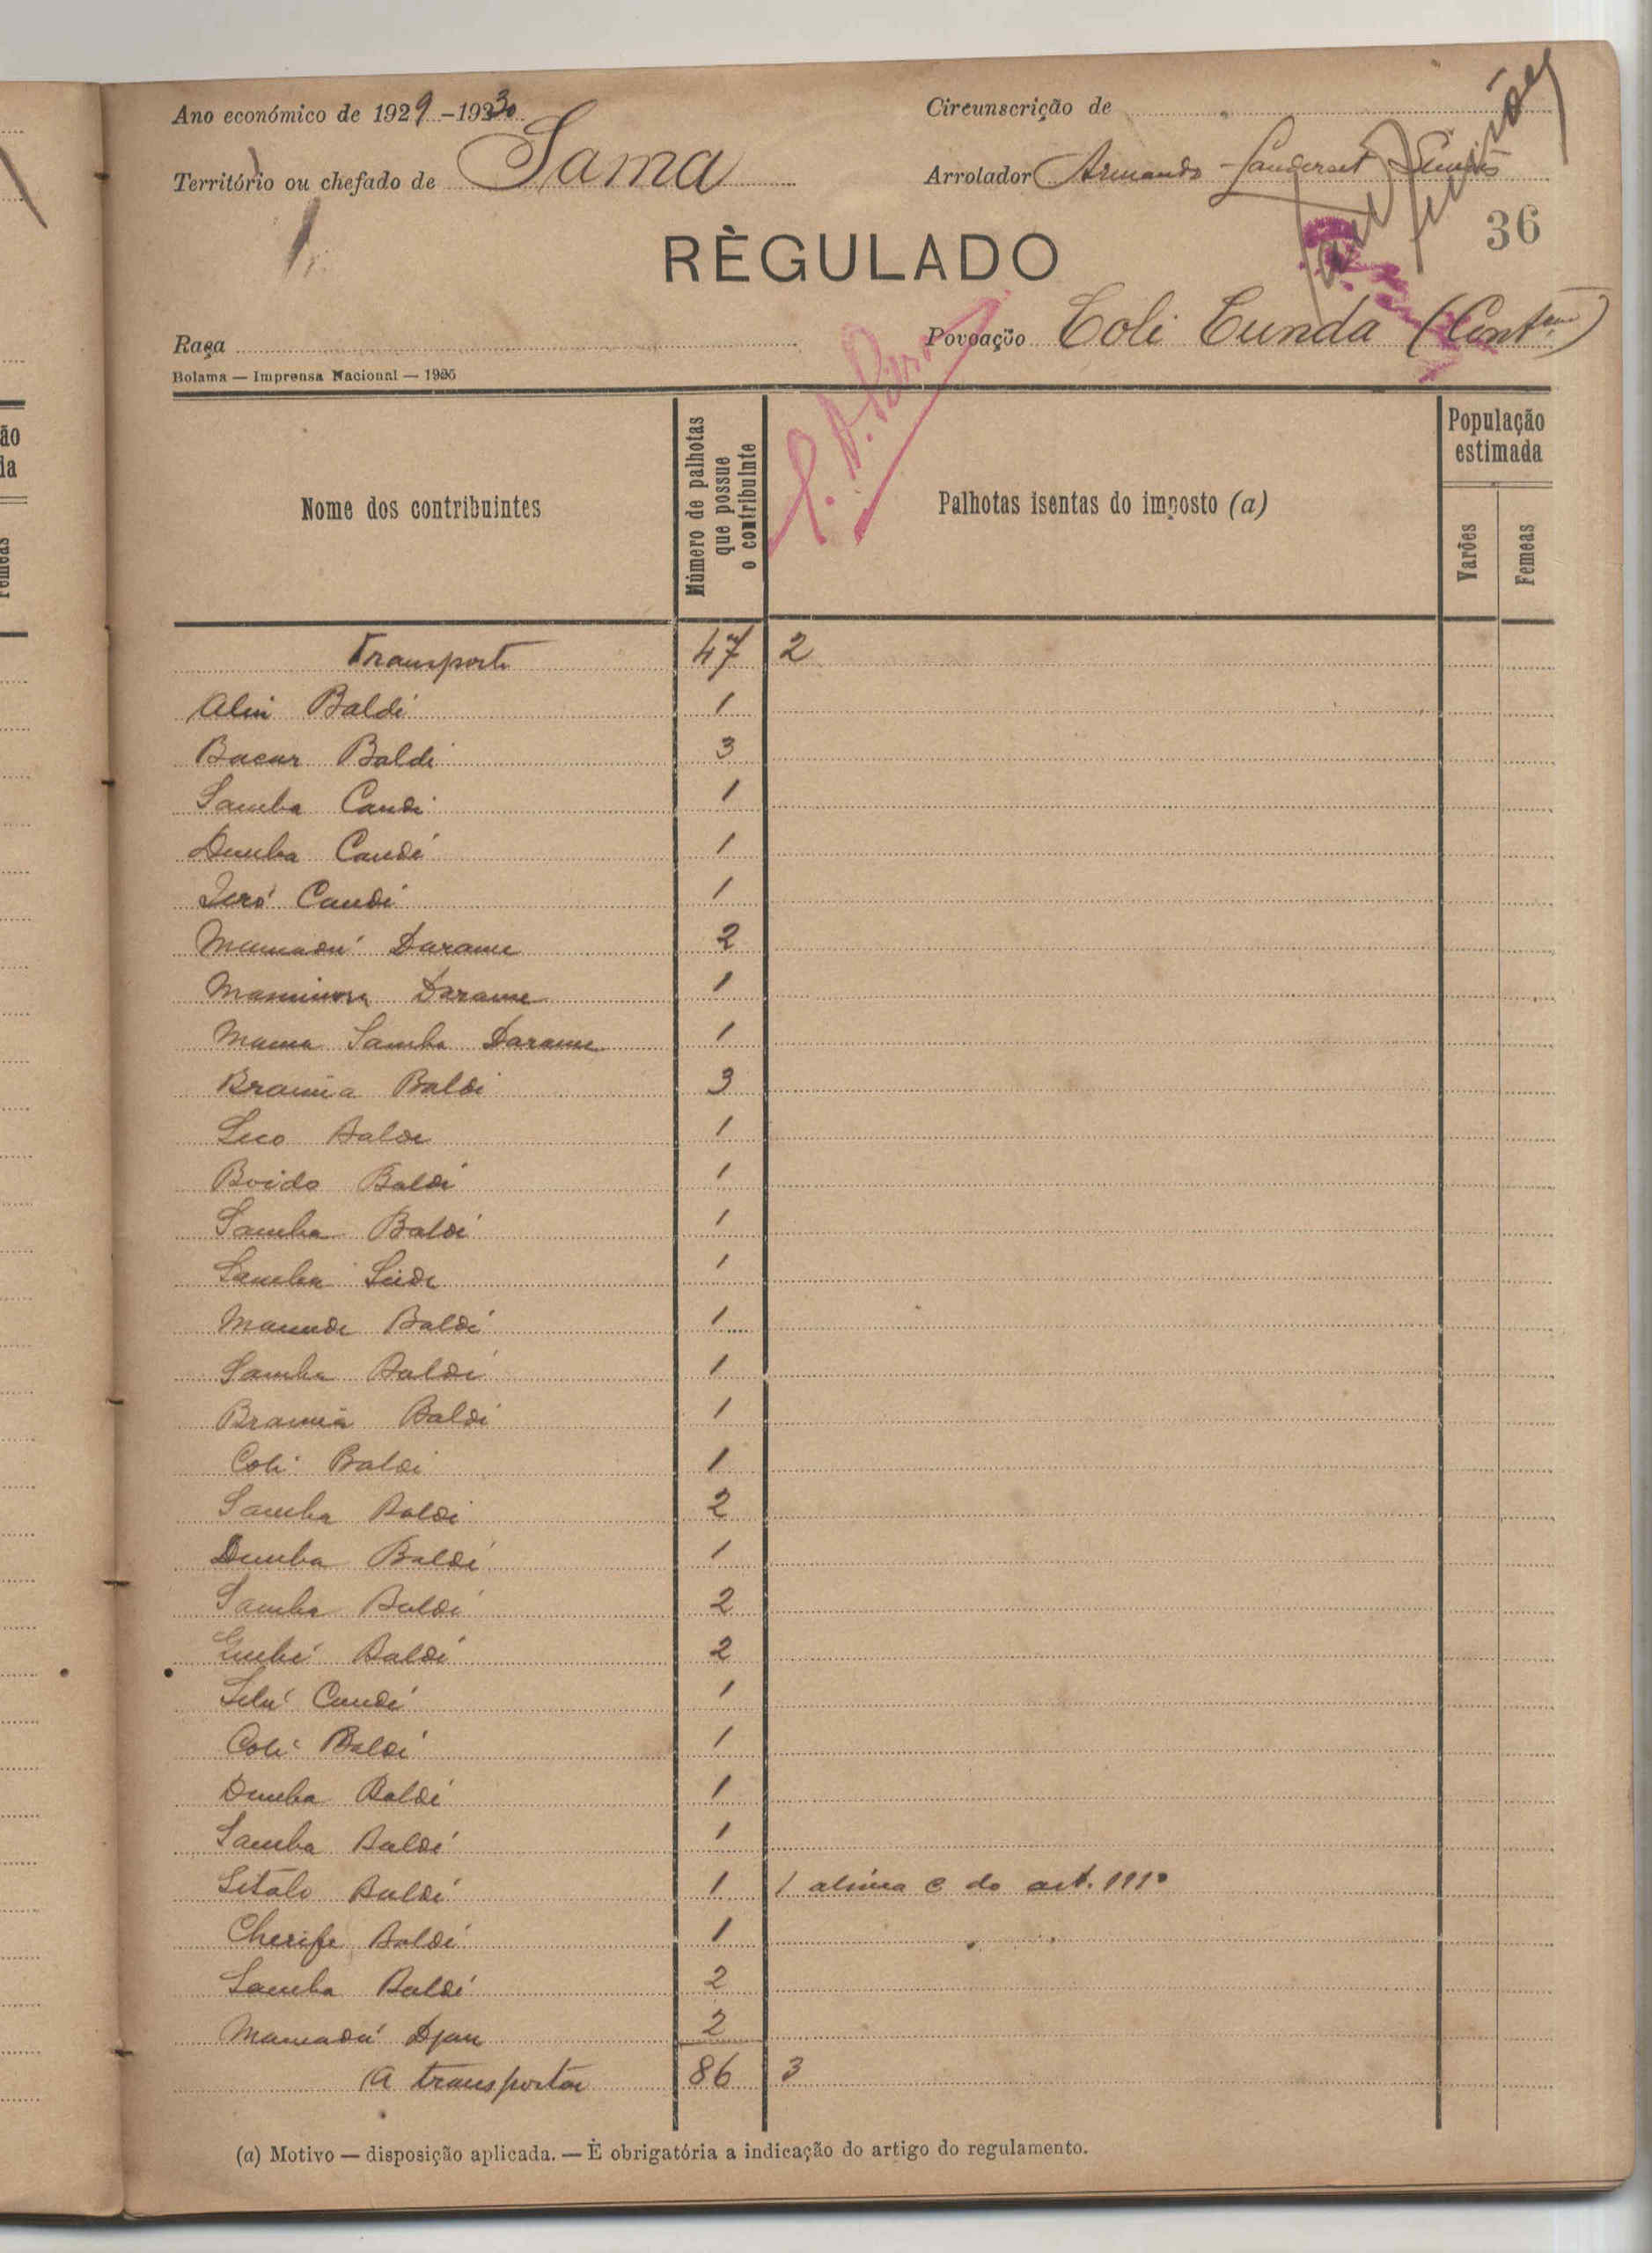 Ano económico de 1929-1930
Circunscrição de
Território ou chefado de Sama
Arrolador Armando
36
RÈGULADO
Raça
Povoação Coli Cunda (Contm)
Bolama — Imprensa Nacional — 1925
Nome dos contribuintes
Número de palhotas que possue o contribuinte
Palhotas isentas do imposto (a)
População estimada
Varões
Femeas
Transporte 47 2
Baldé 1
Bacar Baldé 3
Samba Candé 1
Demba Candé 1
Candé 1
Mamadú Darame 2
Darame 1
Samba Darame 1
Braima Baldé 3
Seco Baldé 1
Boido Baldé 1
Samba Baldé 1
Samba 1
Baldé 1
Samba Baldé 1
Braima Baldé 1
Coli Baldé 1
Samba Baldé 2
Demba Baldé 1
Samba Baldé 2
Baldé 2
Candé 1
Coli Baldé 1
Demba Baldé 1
Samba Baldé 1
Sitalo Baldé 1 1 alinea c do art. 111º
Cherife Baldé 1
Samba Baldé 2
Mamadú Djau 2
A transportar 86 3
(a) Motivo — disposição aplicada. — È obrigatória a indicação do artigo do regulamento.